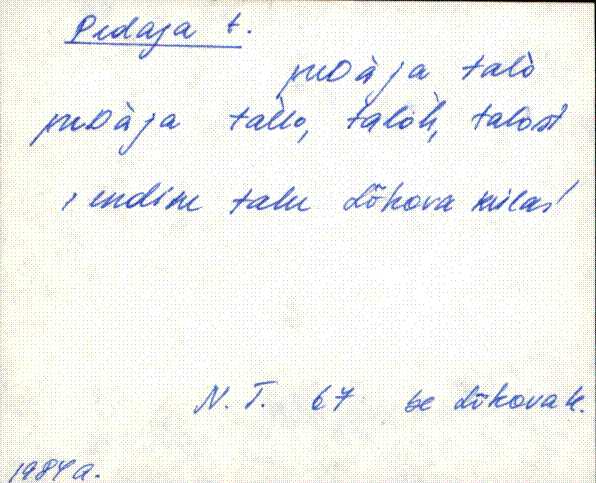 Pedaja t.
peDäjä talo
peDäjä tallo, taloh, talost
, endine talu Lõkova külas'
N. T. 67 se Lõkova k.
1984 a.